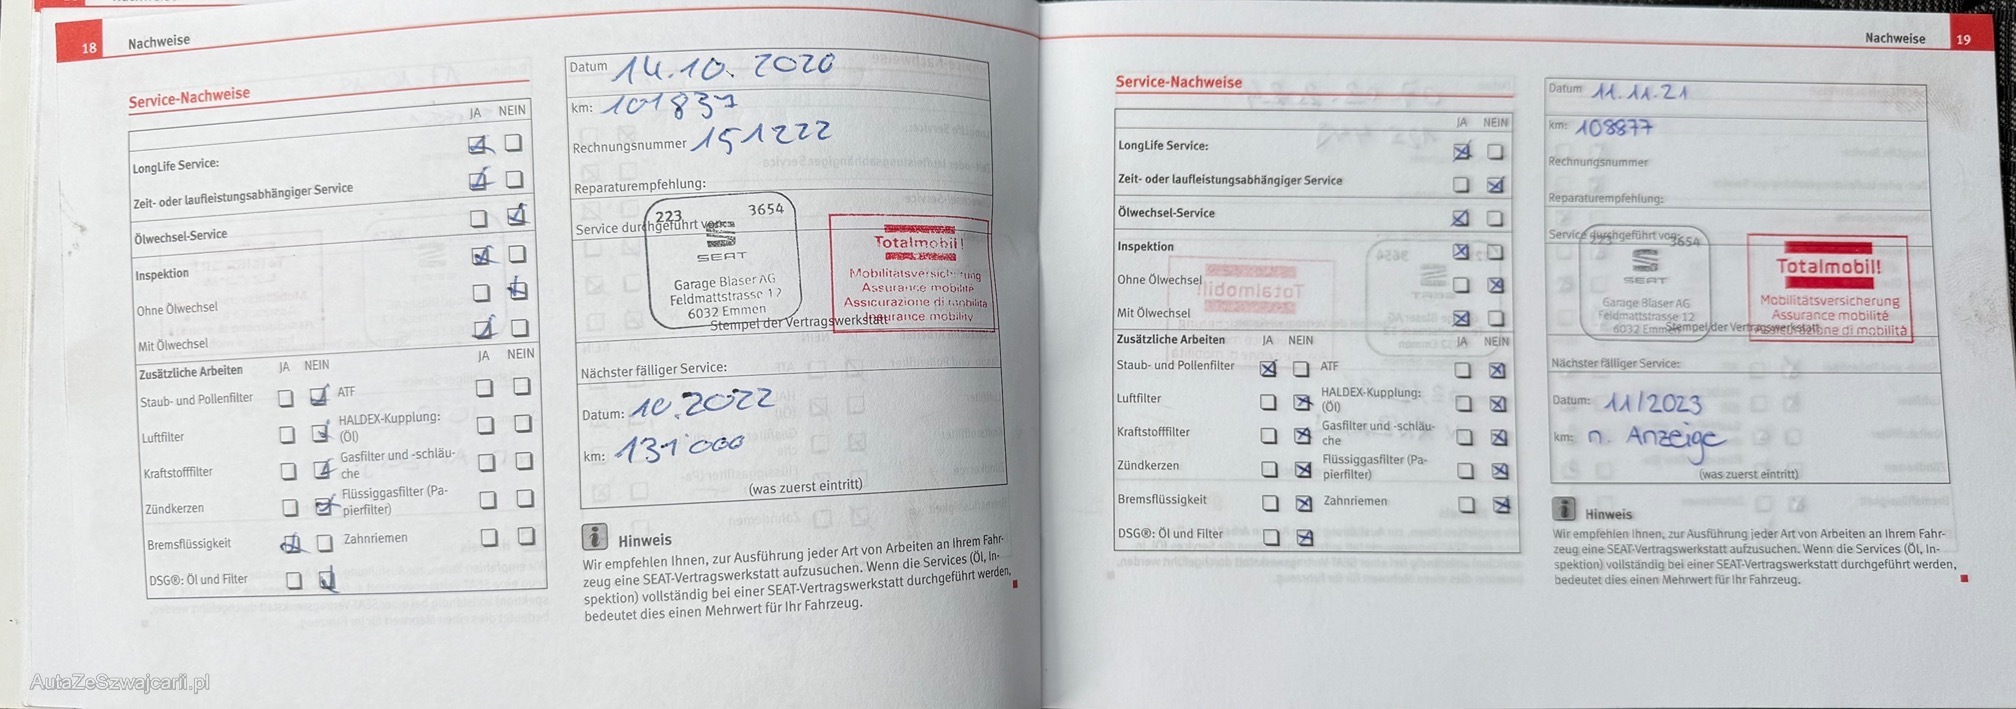 18 Nachweise
Service-Nachweise
JA NEIN
LongLife Service:
Zeit- oder laufleistungsabhängiger Service
Ölwechsel-Service
Inspektion
Ohne Ölwechsel
Mit Ölwechsel
Zusätzliche Arbeiten JA NEIN JA NEIN
Staub- und Pollenfilter ATF
Luftfilter HALDEX-Kupplung:
(Öl)
Kraftstofffilter Gasfilter und -schläu-
che
Zündkerzen Flüssiggasfilter (Pa-
pierfilter)
Bremsflüssigkeit Zahnriemen
DSG®: Öl und Filter
Datum 14.10.2020
km: 101837
Rechnungsnummer 151222
Reparaturempfehlung:
Service durchgeführt von:
223 3654
SEAT
Garage Blaser AG
Feldmattstrasse 12
6032 Emmen
Totalmobil!
Mobilitätsversicherung
Assurance mobilité
Assicurazione di mobilità
Insurance mobility
Stempel der Vertragswerkstatt
Nächster fälliger Service:
Datum: 10.2022
km: 131'000
(was zuerst eintritt)
i Hinweis
Wir empfehlen Ihnen, zur Ausführung jeder Art von Arbeiten an Ihrem Fahr-
zeug eine SEAT-Vertragswerkstatt aufzusuchen. Wenn die Services (Öl, In-
spektion) vollständig bei einer SEAT-Vertragswerkstatt durchgeführt werden,
bedeutet dies einen Mehrwert für Ihr Fahrzeug.
Nachweise 19
Service-Nachweise
JA NEIN
LongLife Service:
Zeit- oder laufleistungsabhängiger Service
Ölwechsel-Service
Inspektion
Ohne Ölwechsel
Mit Ölwechsel
Zusätzliche Arbeiten JA NEIN JA NEIN
Staub- und Pollenfilter ATF
Luftfilter HALDEX-Kupplung:
(Öl)
Kraftstofffilter Gasfilter und -schläu-
che
Zündkerzen Flüssiggasfilter (Pa-
pierfilter)
Bremsflüssigkeit Zahnriemen
DSG®: Öl und Filter
Datum 11.11.21
km: 108877
Rechnungsnummer
Reparaturempfehlung:
Service durchgeführt von:
223 3654
SEAT
Garage Blaser AG
Feldmattstrasse 12
6032 Emmen
Totalmobil!
Mobilitätsversicherung
Assurance mobilité
Assicurazione di mobilità
Stempel der Vertragswerkstatt
Nächster fälliger Service:
Datum: 11/2023
km: n. Anzeige
(was zuerst eintritt)
i Hinweis
Wir empfehlen Ihnen, zur Ausführung jeder Art von Arbeiten an Ihrem Fahr-
zeug eine SEAT-Vertragswerkstatt aufzusuchen. Wenn die Services (Öl, In-
spektion) vollständig bei einer SEAT-Vertragswerkstatt durchgeführt werden,
bedeutet dies einen Mehrwert für Ihr Fahrzeug.
AutaZeSzwajcarii.pl